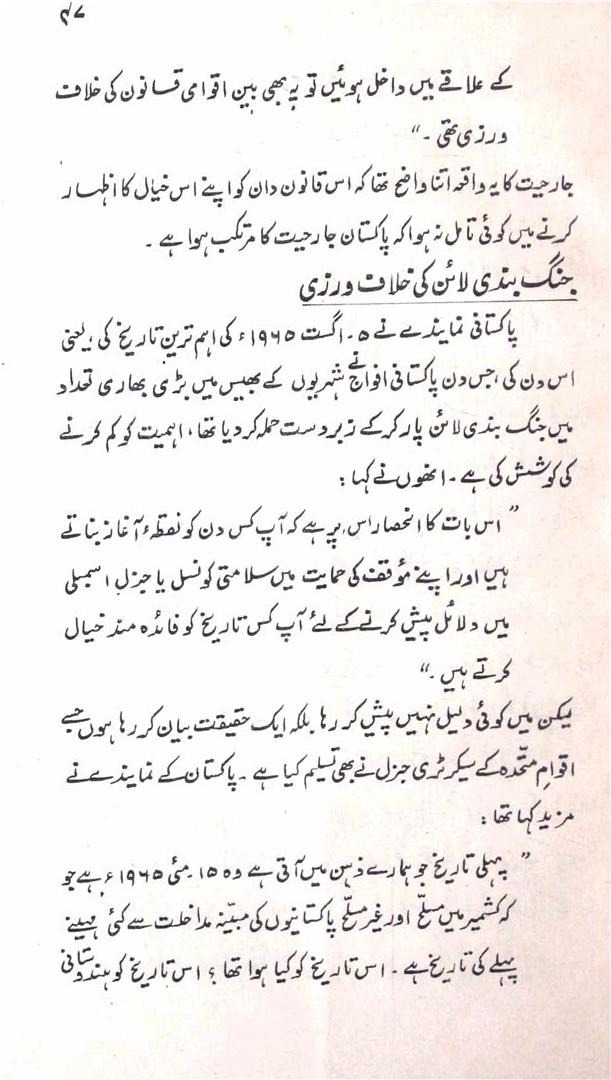 ۴۷
کے علاقے میں داخل ہوئیں تو یہ بھی بین اقوامی قانون کی خلاف
ورزی تھی ۔"
جارحیت کا یہ واقعہ اتنا واضح تھا کہ اس قانون دان کو اپنے اس خیال کا اظہار
کرنے میں کوئی تامل نہ ہوا کہ پاکستان جارحیت کا مرتکب ہوا ہے ۔
جنگ بندی لائن کی خلاف ورزی
پاکستانی نمایندے نے ۵۔ اگست ۱۹۶۵ء کی اہم ترین تاریخ کی، یعنی
اس دن کی، جس دن پاکستانی افواج نے شہریوں کے بھیس میں بڑی بھاری تعداد
میں جنگ بندی لائن پار کرکے زبردست حملہ کر دیا تھا، اہمیت کو کم کرنے
کی کوشش کی ہے ۔ انھوں نے کہا :
" اس بات کا انحصار اس پر ہے کہ آپ کس دن کو نقطۂ آغاز بناتے
ہیں اور اپنے مؤقف کی حمایت میں سلامتی کونسل یا جنرل اسمبلی
میں دلائل پیش کرنے کے لئے آپ کس تاریخ کو فائدہ مند خیال
کرتے ہیں ۔"
لیکن میں کوئی دلیل نہیں پیش کر رہا بلکہ ایک حقیقت بیان کر رہا ہوں جسے
اقوامِ متحّدہ کے سیکرٹری جنرل نے بھی تسلیم کیا ہے ۔ پاکستان کے نمایندے نے
مزید کہا تھا :
" پہلی تاریخ جو ہمارے ذہن میں آتی ہے وہ ۱۵۔ مئی ۱۹۶۵ء ہے جو
کہ کشمیر میں مسلّح اور غیر مسلّح پاکستانیوں کی مبیّنہ مداخلت سے کئی مہینے
پہلے کی تاریخ ہے ۔ اس تاریخ کو کیا ہوا تھا ؟ اس تاریخ کو ہندوستانی